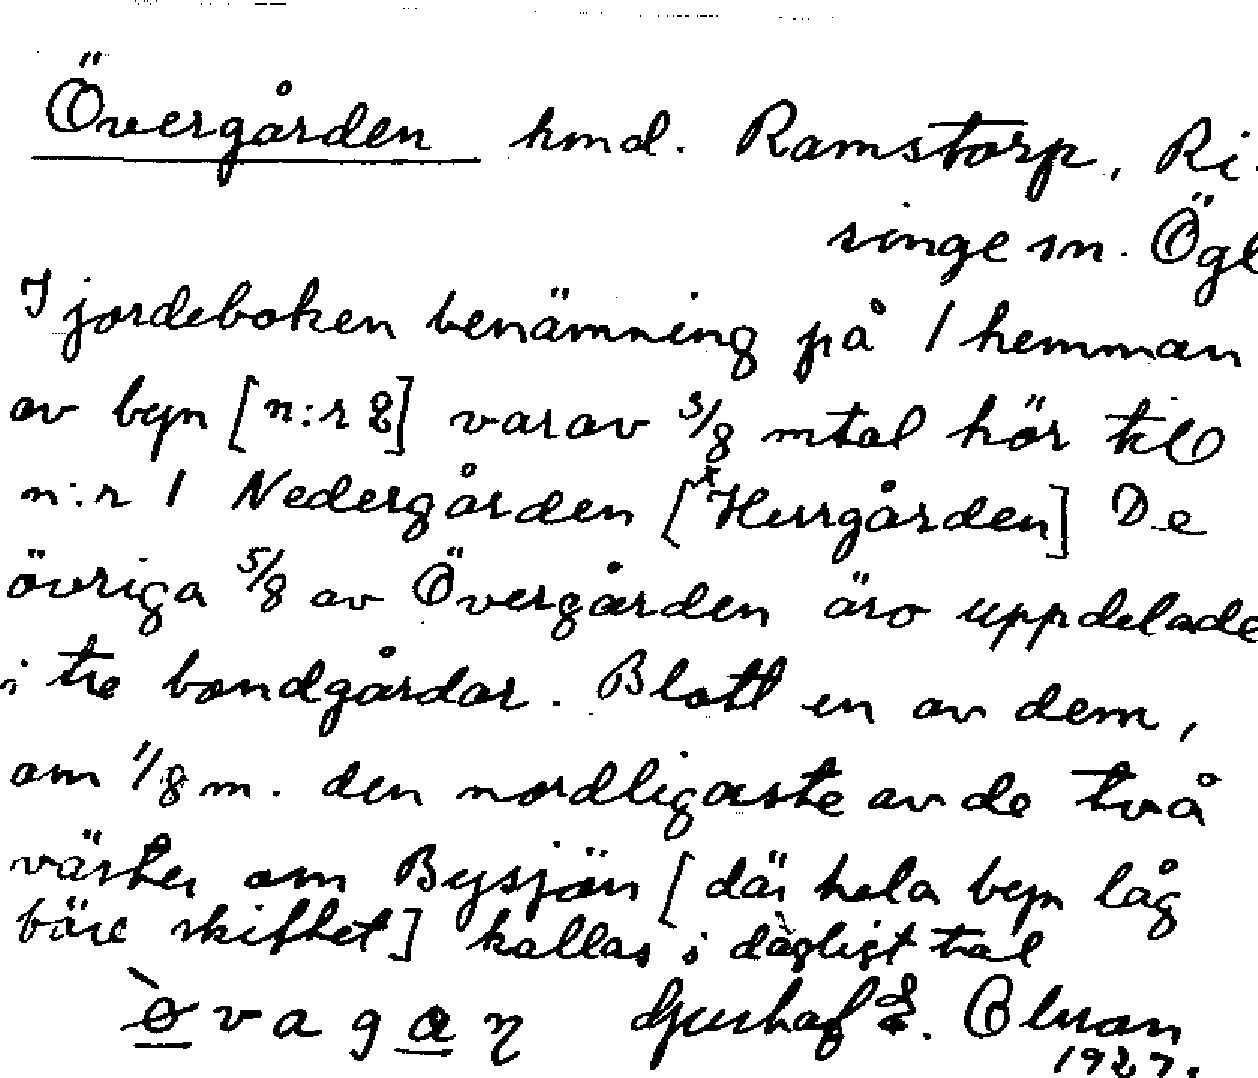 Övergården hmd. Ramstorp, Ri-
singe sn. Ögl
I jordeboken benämning på 1 hemman
av byn [n:r 2] varav 3/8 mtal hör till
n:r 1 Nedergården [Herrgården] De
övriga 5/8 av Övergården äro uppdelade
i tre bondgårdar. Blott en av dem,
om 1/8 m. den nordligaste av de två
väster om Bysjön [där hela byn låg
före skiftet] kallas i dagligt tal
Gustaf Olsson
1927.